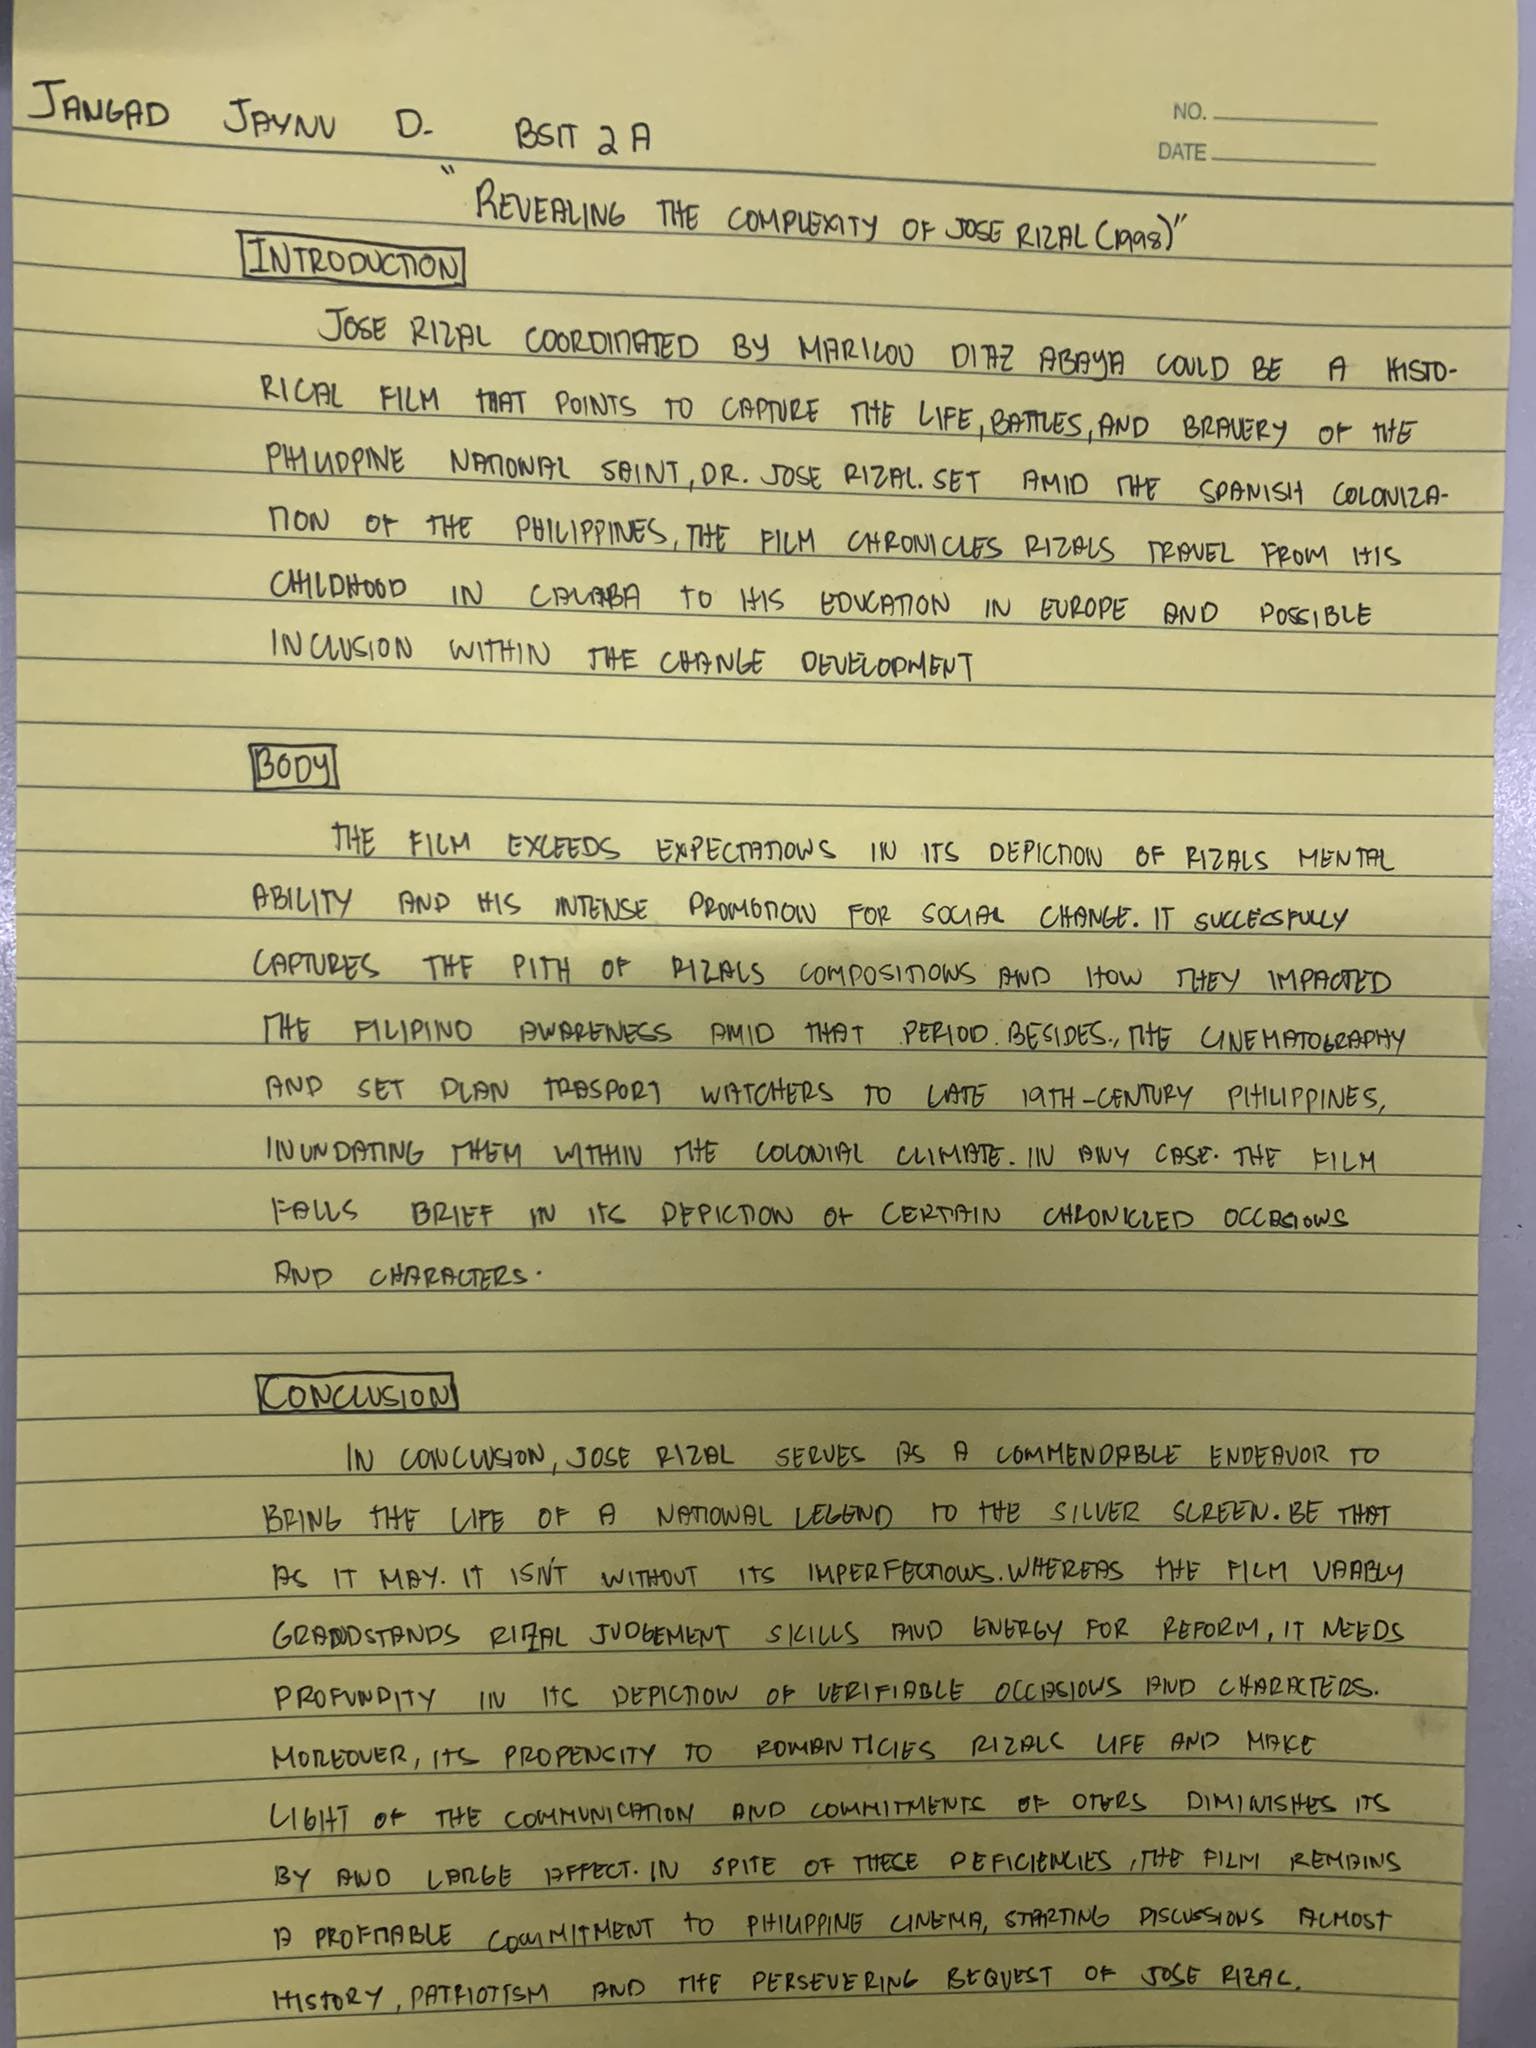 JANGAD JAYNU D. BSIT 2A
NO.
DATE
"REVEALING THE COMPLEXITY OF JOSE RIZAL (1998)"
INTRODUCTION
JOSE RIZAL COORDINATED BY MARILOU DIAZ ABAYA COULD BE A HISTO-
RICAL FILM THAT POINTS TO CAPTURE THE LIFE, BATTLES, AND BRAVERY OF THE
PHILIPPINE NATIONAL SAINT, DR. JOSE RIZAL. SET AMID THE SPANISH COLONIZA-
TION OF THE PHILIPPINES, THE FILM CHRONICLES RIZALS TRAVEL FROM HIS
CHILDHOOD IN CALABA TO HIS EDUCATION IN EUROPE AND POSSIBLE
INCLUSION WITHIN THE CHANGE DEVELOPMENT
BODY
THE FILM EXCEEDS EXPECTATIONS IN ITS DEPICTION OF RIZALS MENTAL
ABILITY AND HIS INTENSE PROMOTION FOR SOCIAL CHANGE. IT SUCCESSFULLY
CAPTURES THE PITH OF RIZALS COMPOSITIONS AND HOW THEY IMPACTED
THE FILIPINO AWARENESS AMID THAT PERIOD. BESIDES., THE CINEMATOGRAPHY
AND SET PLAN TRASPORT WATCHERS TO LATE 19TH-CENTURY PHILIPPINES,
INUNDATING THEM WITHIN THE COLONIAL CLIMATE. IN ANY CASE. THE FILM
FALLS BRIEF IN ITS DEPICTION OF CERTAIN CHRONICLED OCCASIONS
AND CHARACTERS.
CONCLUSION
IN CONCLUSION, JOSE RIZAL SERVES AS A COMMENDABLE ENDEAVOR TO
BRING THE LIFE OF A NATIONAL LEGEND TO THE SILVER SCREEN. BE THAT
AS IT MAY. IT ISN'T WITHOUT ITS IMPERFECTIONS. WHEREAS THE FILM
GRANDSTANDS RIZAL JUDGEMENT SKILLS AND ENERGY FOR REFORM, IT NEEDS
PROFUNDITY IN ITS DEPICTION OF VERIFIABLE OCCASIONS AND CHARACTERS.
MOREOVER, ITS PROPENSITY TO ROMANTICIES RIZALS LIFE AND MAKE
LIGHT OF THE COMMUNICATION AND COMMITMENTS OF OTERS DIMINISHES ITS
BY AND LARGE AFFECT. IN SPITE OF THESE DEFICIENCIES, THE FILM REMAINS
A PROFITABLE COMMITMENT TO PHILIPPINE CINEMA, STARTING DISCUSSIONS ALMOST
HISTORY, PATRIOTISM AND THE PERSEVERING BEQUEST OF JOSE RIZAL.